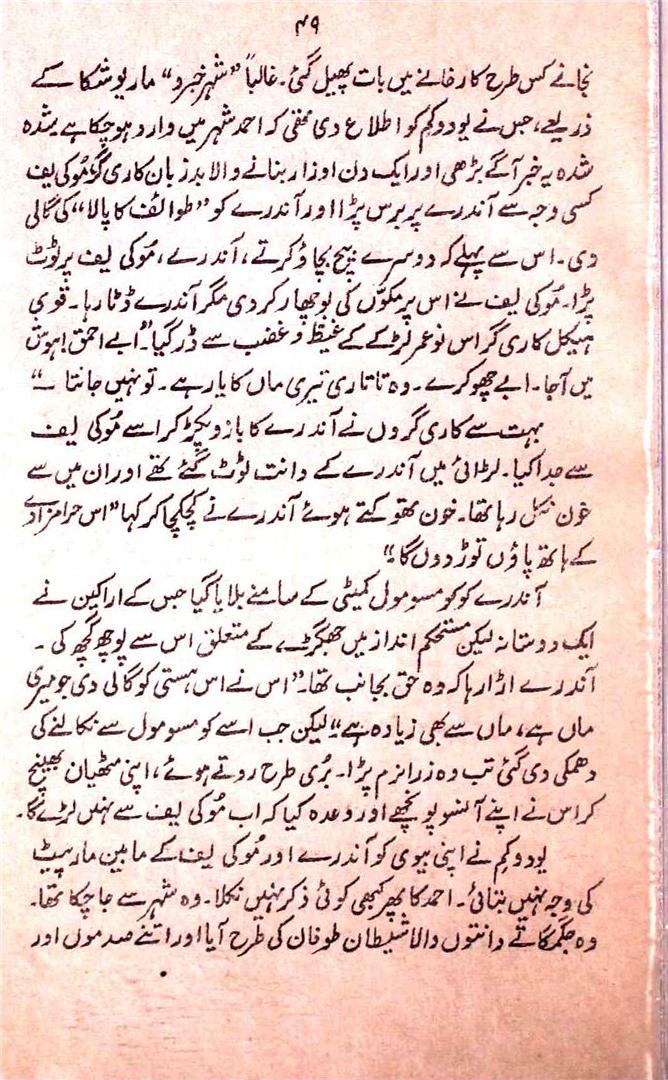 ۴۹
نجانے کس طرح کارخانے میں بات پھیل گئی۔ غالباً ”شہر خبرو“ ماریوشکا کے
ذریعے، جس نے یودوکم کو اطلاع دی تھی کہ احمد شہر میں وارد ہو چکا ہے شدہ
شدہ یہ خبر آگے بڑھی اور ایک دن اوزار بنانے والا بدزبان کاری گر مُوکی یف
کسی وجہ سے آندرے پر برس پڑا اور آندرے کو ”طوائف کا پالا“ کی گالی
دی۔ اس سے پہلے کہ دوسرے بیچ بچاؤ کرتے، آندرے، مُوکی یف پر ٹوٹ
پڑا۔ مُوکی لیف نے اس پر مکوّں کی بوچھار کر دی مگر آندرے ڈٹا رہا۔ قوی
ہیکل کاری گر اس نوعمر لڑکے کے غیظ و غضب سے ڈر گیا۔ ”ابے احمق! ہوش
میں آجا۔ ابے چھوکرے۔ وہ تاتاری تیری ماں کا یار ہے۔ تو نہیں جانتا ۔“
بہت سے کاری گروں نے آندرے کا بازو پکڑ کر اسے مُوکی لیف
سے جدا کیا۔ لڑائی میں آندرے کے دانت ٹوٹ گئے تھے اور ان میں سے
خون نکل رہا تھا۔ خون تھوکتے ہوئے آندرے نے کچکچا کر کہا ”اس حرامزادے
کے ہاتھ پاؤں توڑ دوں گا۔“
آندرے کو کومسومول کمیٹی کے سامنے بلایا گیا جس کے اراکین نے
ایک دوستانہ لیکن مستحکم انداز میں جھگڑے کے متعلق اس سے پوچھ گچھ کی۔
آندرے اڑا رہا کہ وہ حق بجانب تھا۔ ”اس نے اس ہستی کو گالی دی جو میری
ماں ہے، ماں سے بھی زیادہ ہے“ لیکن جب اسے کومسومول سے نکالنے کی
دھمکی دی گئی تب وہ ذرا نرم پڑا۔ بُری طرح روتے ہوئے، اپنی مٹھیاں بھینچ
کر اس نے اپنے آنسو پونچھے اور وعدہ کیا کہ اب مُوکی لیف سے نہیں لڑے گا۔
یودوکم نے اپنی بیوی کو آندرے اور مُوکی لیف کے مابین مارپیٹ
کی وجہ نہیں بتائی۔ احمد کا پھر کبھی کوئی ذکر نہیں نکلا۔ وہ شہر سے جا چکا تھا۔
وہ جگمگاتے دانتوں والا شیطان طوفان کی طرح آیا اور اتنے صدموں اور